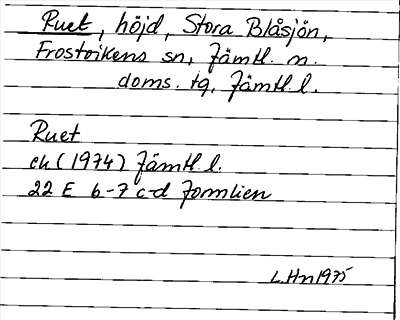 Ruet, höjd, Stora Blåsjön,
Frostvikens sn, Jämtl. n.
doms. tg, Jämtl. l.
Ruet
ek (1974) Jämtl. l.
22 E 6-7 c-d Jormlien
L.Hn 1975